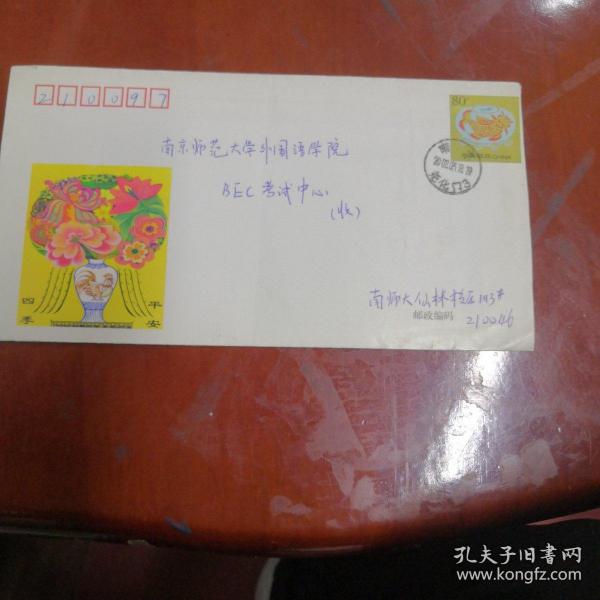 210097
80
南京师范大学外国语学院
BEC考试中心
(收)
四季
平安
南师大仙林校区143#
邮政编码
210046
孔夫子旧书网
www.kongfz.com